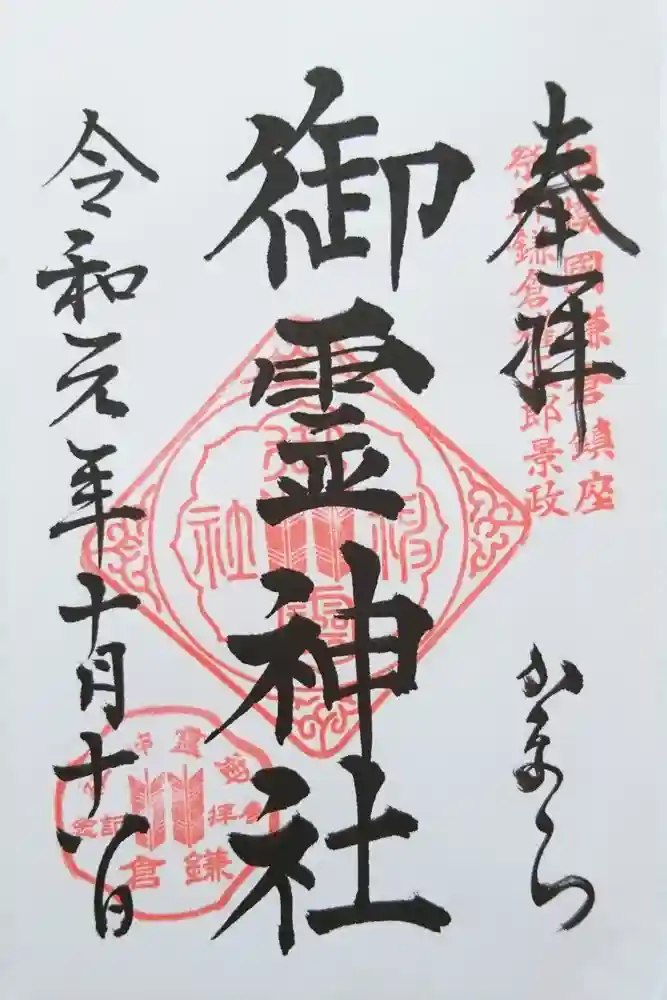 奉拝
相模國鎌倉鎮座
祭神鎌倉権五郎景政
かまくら
御霊神社
御靈神社
令和元年十月十八日
参拝記念
鎌倉